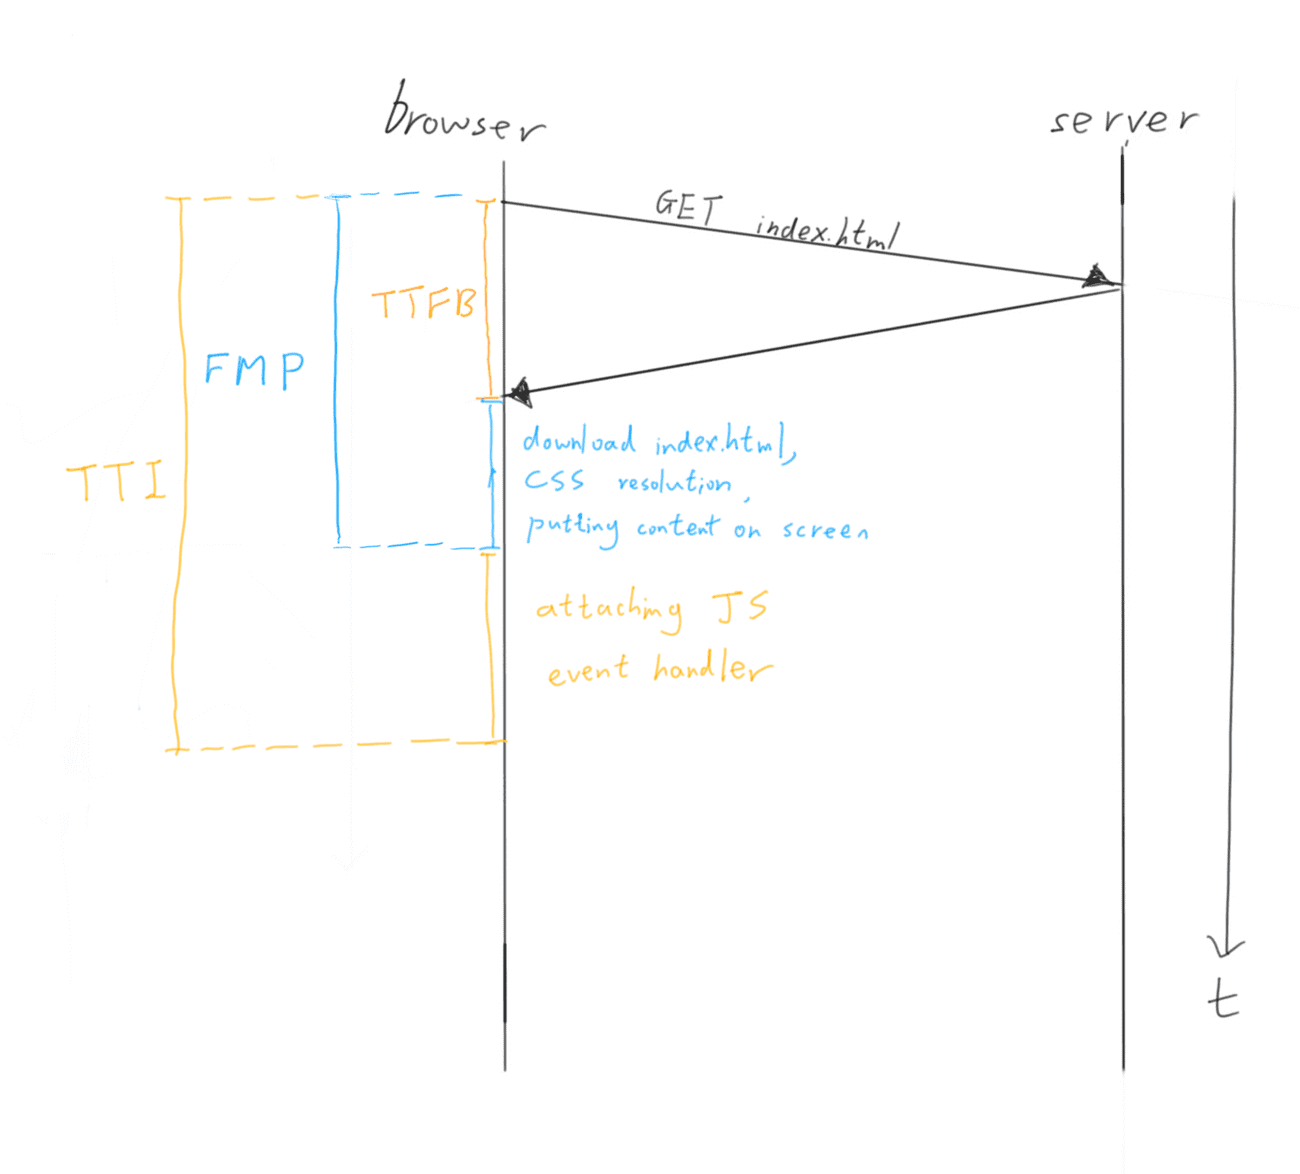 browser
server
GET index.html
TTFB
FMP
TTI
download index.html,
CSS resolution,
putting content on screen
attaching JS
event handler
t